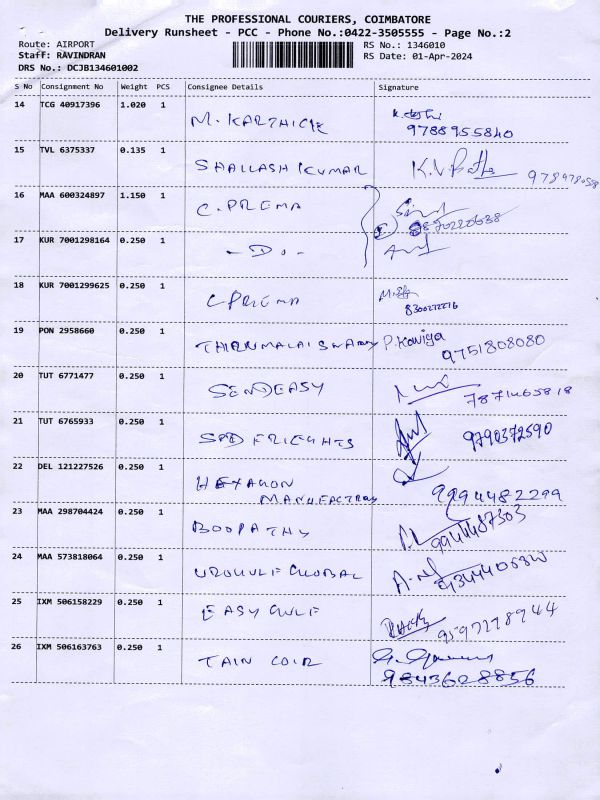 THE PROFESSIONAL COURIERS, COIMBATORE
Delivery Runsheet - PCC - Phone No.:0422-3505555 - Page No.:2
Route: AIRPORT RS No.: 1346010
Staff: RAVINDRAN RS Date: 01-Apr-2024
DRS No.: DCJB134601002
S No Consignment No Weight PCS Consignee Details Signature
14 TCG 40917396 1.020 1 M. KARTHICK
9788955840
15 TVL 6375337 0.135 1 SHAILASH KUMAR
16 MAA 600324897 1.150 1 C. PREMA
17 KUR 7001298164 0.250 1 - Do -
18 KUR 7001299625 0.250 1 C PREMA
8300272276
19 PON 2958660 0.250 1 THIRUMALAI SWAMY P. Kaviya
9751808080
20 TUT 6771477 0.250 1 SENDEASY
7871465818
21 TUT 6765933 0.250 1 SPD FRIEGHTS 9790372590
22 DEL 121227526 0.250 1 HEXAGON
MANUFACTROY 9994482299
23 MAA 298704424 0.250 1 BOOPATHY
9944487303
24 MAA 573818064 0.250 1 GLOBAL
25 IXM 506158229 0.250 1 EASY GULF
9597278944
26 IXM 506163763 0.250 1 TAIN COIR
9843628856